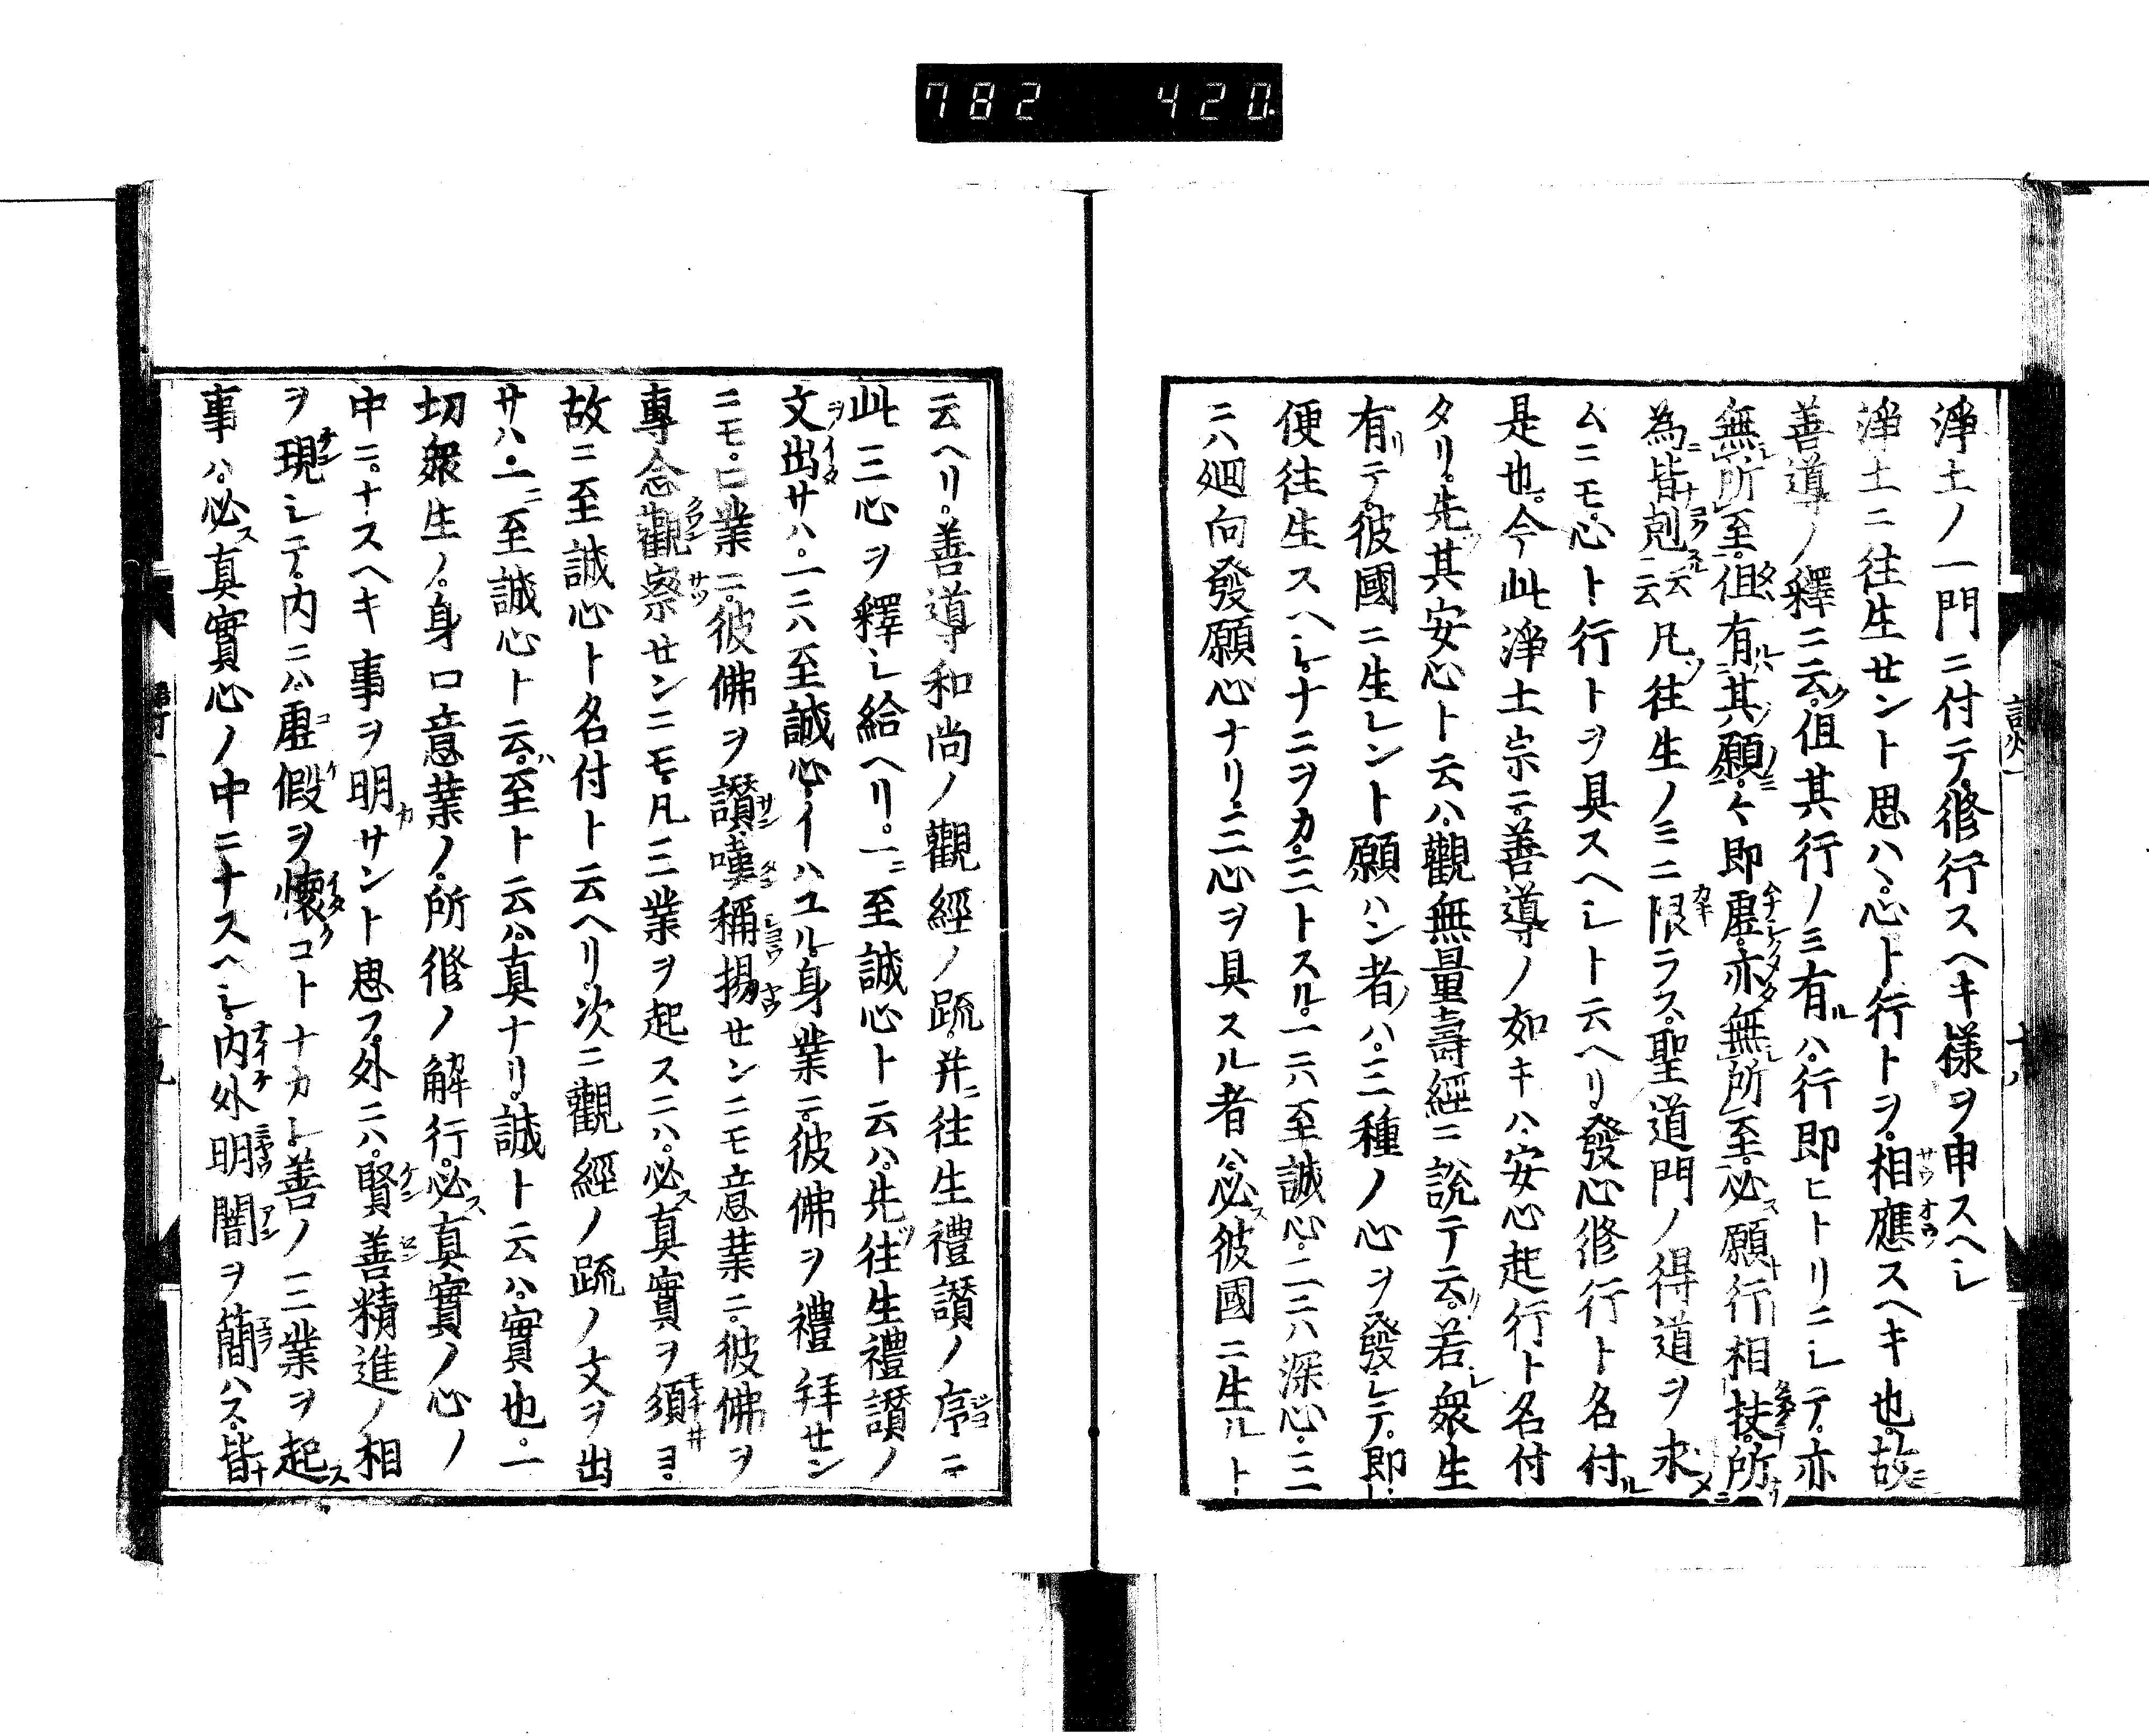 782 420
淨土ノ一門ニ付テ。修行スヘキ様ヲ申スヘシ
淨土ニ往生セント思ハヽ。心ト行トヲ。相應スヘキ也。故ニ
善導ノ釋ニ云ク。但其行ノミ有ルハ。行即ヒトリニシテ。亦
無所至。但有其願。々即虚。亦無所至。必ス願行相扶。所
為皆剋云云凡ソ往生ノミニ限ラス。聖道門ノ得道ヲ求メ
ムニモ。心ト行トヲ具スヘシト云ヘリ。發心修行ト名付ル
是也。今此淨土宗ニ善導ノ如キハ。安心起行ト名付
タリ。先ツ其安心ト云ハ。觀無量壽經ニ説テ云。若シ衆生
有リテ。彼國ニ生レント願ハン者ノハ。三種ノ心ヲ發シテ。即
便往生スヘシ。ナニヲカ。三トスル。一ニハ至誠心。二ニハ深心。三
ニハ廻向發願心ナリ。三心ヲ具スル者ハ。必ス彼國ニ生ルト
云ヘリ。善導和尚ノ觀經ノ疏。并ニ往生禮讃ノ序ニ
此三心ヲ釋シ給ヘリ。一ニ至誠心ト云ハ。先ツ往生禮讃ノ
文ヲ出サハ。一ニハ至誠心。イハユル。身業ニ。彼佛ヲ禮拜セン
ニモ。口業ニ。彼佛ヲ讃嘆稱揚センニモ意業ニ。彼佛ヲ
專念觀察センニモ。凡三業ヲ起スニハ。必ス真實ヲ須ヨ。
故ニ至誠心ト名付ト云ヘリ。次ニ觀經ノ疏ノ文ヲ出
サハ。一ニ至誠心ト云ハ。至ト云ハ。真ナリ。誠ト云ハ。實也。一
切衆生ノ。身口意業ノ。所修ノ解行。必ス真實ノ心ノ
中ニ。ナスヘキ事ヲ明サント思フ。外ニハ。賢善精進ノ相
ヲ現シテ。内ニハ。虚假ヲ懐クコトナカレ。善ノ三業ヲ起ス
事ハ。必ス真實心ノ中ニナスヘシ。内外明闇ヲ簡ハス。皆ナ